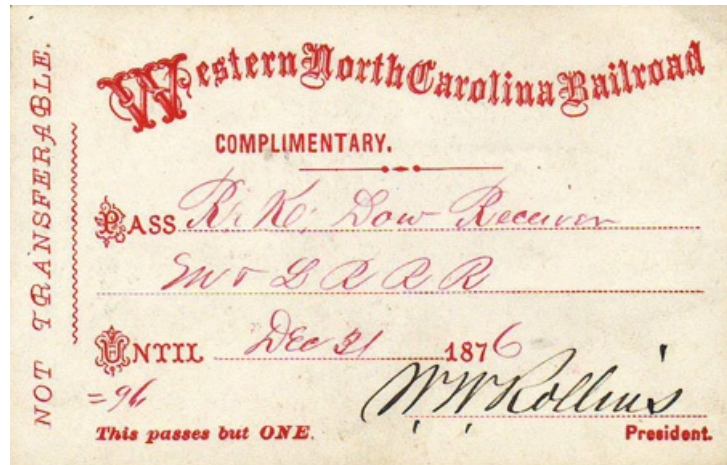 NOT TRANSFERABLE.
Western North Carolina Railroad
COMPLIMENTARY.
PASS R. K. Dow Receiver
R R R
UNTIL Dec 31 1876
=96
W. W. Rollins
This passes but ONE. President.